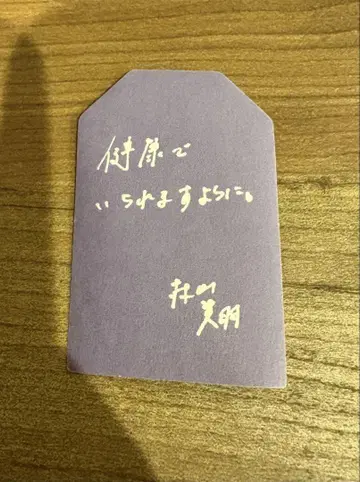 健康で
いられますように。
美明